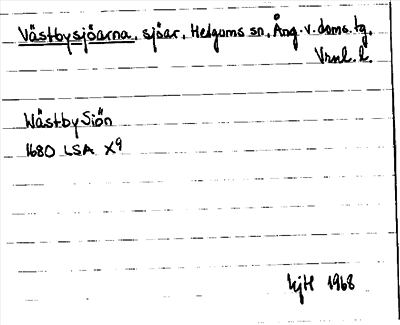 Västbysjöarna, sjöar, Helgums sn, Ång. v. doms. tg,
Vrnl. l.
WästbySiön
1680 LSA X9
kjH 1968